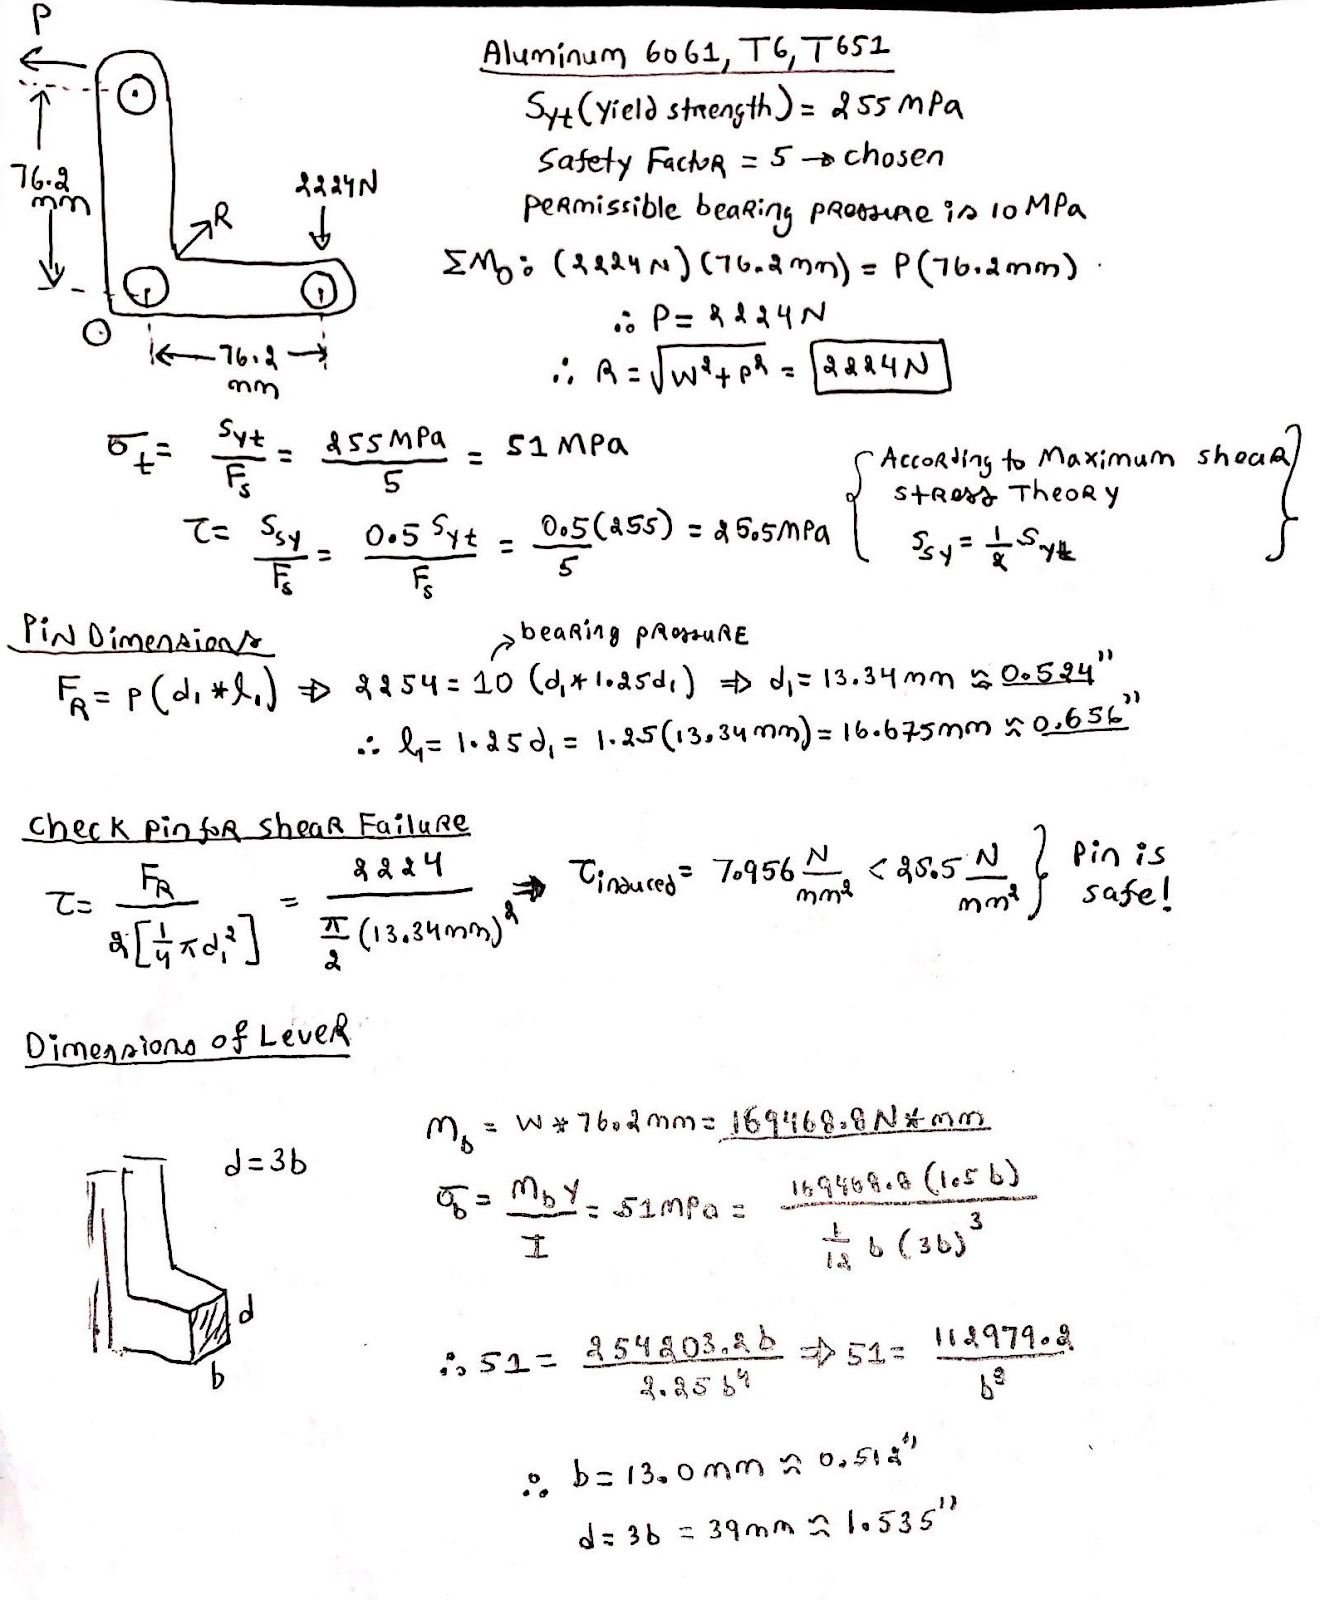 P
76.2
mm
R
2224N
O
76.2
mm
Aluminum 6061, T6, T651
Syt (Yield strength) = 255 MPa
Safety Factor = 5 → chosen
Permissible bearing pressure is 10 MPa
ΣMo: (2224N)(76.2mm) = P(76.2mm)
∴ P = 2224N
∴ R = √W²+P² = 2224N
σt = Syt/Fs = 255MPa/5 = 51 MPa
τ = Ssy/Fs = 0.5 Syt/Fs = 0.5(255)/5 = 25.5MPa
{According to Maximum shear
stress Theory
Ssy = 1/2 Syt}
Pin Dimensions
bearing pressure
FR = P(d₁*l₁) ⇒ 2254 = 10 (d₁*1.25d₁) ⇒ d₁ = 13.34mm ≈ 0.524"
∴ l₁ = 1.25d₁ = 1.25(13.34mm) = 16.675mm ≈ 0.656"
Check pin for shear Failure
τ = FR/2[1/4 πd₁²] = 2224/π/2 (13.34mm)² ⇒ τinduced = 7.956 N/mm² < 25.5 N/mm² } Pin is
safe!
Dimensions of Lever
d=3b
d
b
Mb = W*76.2mm = 169468.8N*mm
σb = Mb y/I = 51MPa = 169468.8(1.5b)/1/12 b(3b)³
∴ 51 = 254203.2b/2.25b⁴ ⇒ 51 = 112979.2/b³
∴ b = 13.0mm ≈ 0.512"
d = 3b = 39mm ≈ 1.535"